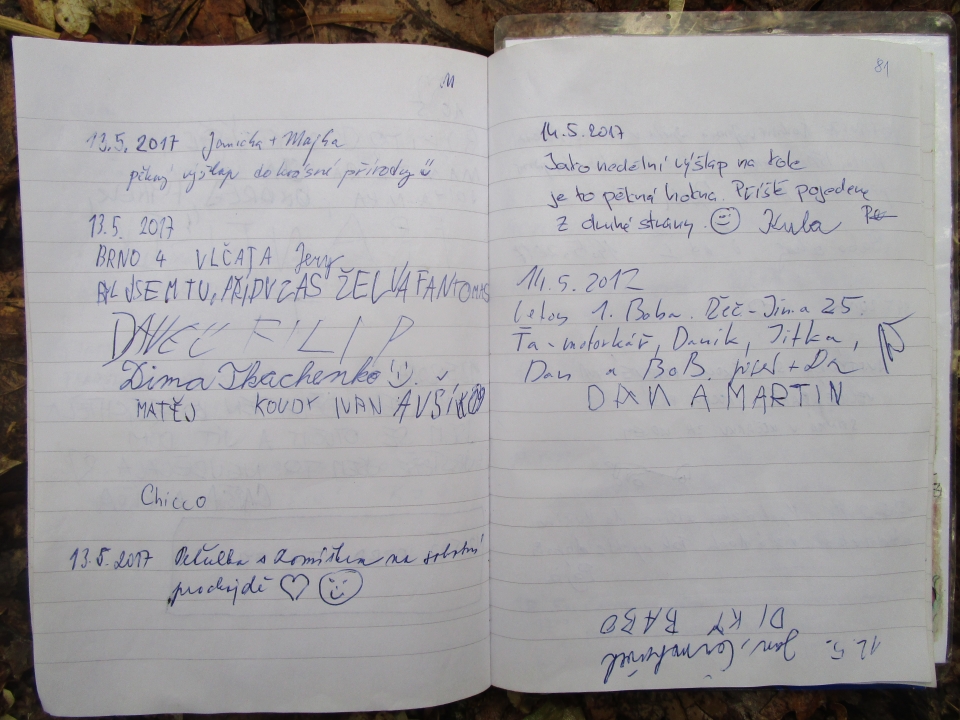 81
13.5.2017 Janička + Majka
pěkný výšlap do krásné přírody
13.5. 2017
BRNO 4 VLČATA Jery
BYL JSEM TU, PŘIDU ZAS ŽELVA FANTOMAS
FILIP
Dima Tkachenko
MATĚJ KOUDY IVAN
Chicco
13.5.2017 Peťulka s na sobotní
procházdě
14.5.2017
Jako nedělní výšlap na kole
je to pěkná hokna. PŘÍŠTĚ pojedeme
z druhé strany. Kuba
14.5.2017
1. Boba. Jima 25.
Ťa-motorkář, Daník, Jitka,
Dan a BoB.
DAN A MARTIN
12.5. Jan,
DÍKY BABO